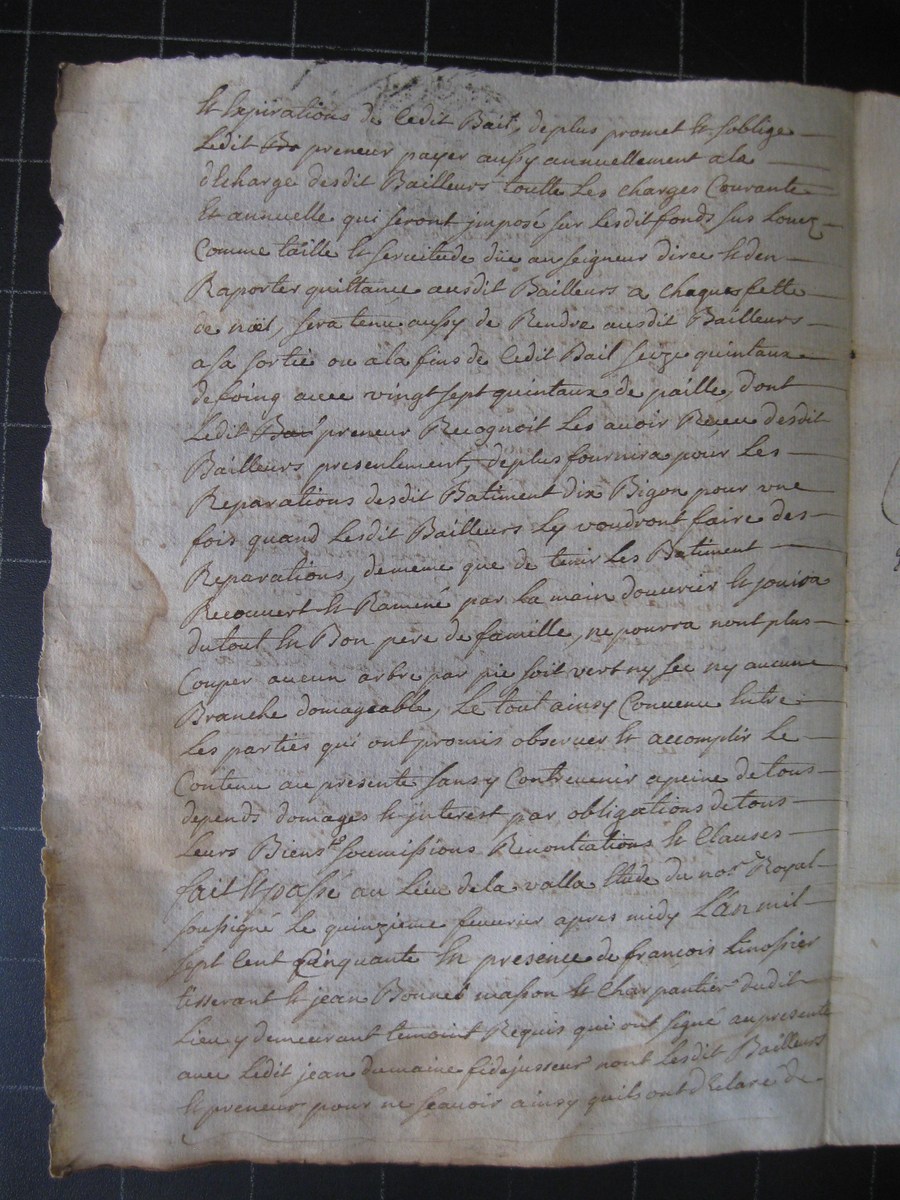 Et Expirations de Cedit Bail, deplus promet Et soblige
Ledit preneur payer aussy annuellement a la
dEcharge desdit Bailleurs toutte Les charges Courante
Et annuelle qui seront jmposé sur Lesdit fonds sus Louez
Comme taille Et servitude düe au seigneur direc Et den
Raporter quittance ausdit Bailleurs a chaque fette
de noël, sera tenu aussy de Rendre ausdit Bailleurs
a sa sortie ou a la fins de Cedit Bail seize quintaux
de foing avec vingt sept quintaux de paille, dont
Ledit Bail preneur Recognoit Les avoir Receu desdit
Bailleurs presentement, deplus fournira pour Les
Reparations desdit Batiment dix Bigon pour une
fois quand Lesdit Bailleurs Ly voudront faire des
Reparations, dememe que de tenir Les Batiment
Recouvert Et Ramené par La main douvrier Et jouira
du tout En Bon pere de famille, ne pourra nont plus
Couper aucun arbre par pie soit vert ny sec ny aucune
Branche domageable, Le tout ainsy Convenu Entre
Les parties qui ont promis observer Et accomplir Le
Contenu au presente sans y Contrevenir a peine de tous
depends domages Et jnterest par obligations de tous
Leurs Biens soumissions Renontiations Et Clauses
fait Et passé au Lieu de la valla Etude du nore Royal
soussigné Le quinzieme fevurier apres midy Lan mil
sept Cent Cinquante En presence de francois Linossier
tisserant Et jean Bonnet masson Et Charpantier dudit
Lieu y demeurant temoint Requis qui ont signé au presente
avec Ledit jean dumaine fidejusseur nont Lesdit Bailleurs
Et preneur pour ne scavoir ainsy quils ont dEclare de